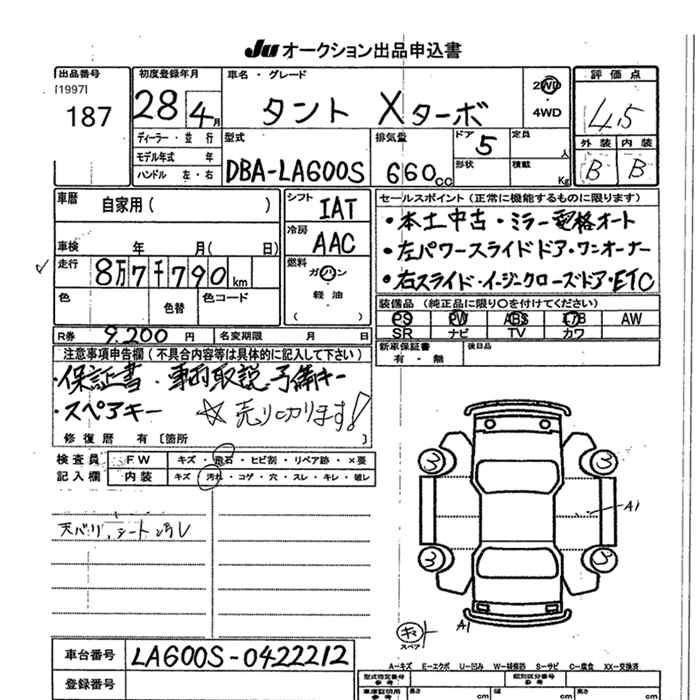 JU オークション出品申込書
出品番号 初度登録年月 車名・グレード 評価点
[1997]
187 28年4月 タント Xターボ 2WD ・ 4WD 4.5
ディーラー・並行 型式 排気量 ドア 定員 外装 内装
モデル年式 年 DBA-LA600S 660cc 5 人 B B
ハンドル 左・右 形状 積載 Kg
車歴 自家用( ) シフト IAT セールスポイント(正常に機能するものに限ります)
・本土中古・ミラー電格オート
冷房 AAC ・左パワースライドドア・ワンオーナー
車検 年 月( 日) ・右スライド・イージークローズドア・ETC
走行 8万7千790km 燃料 ガソリン・軽油・( )
色 色替 色コード 装備品(純正品に限り○を付けてください)
PS PW ABS エアB AW
R券 9,200円 名変期限 月 日 SR ナビ TV カワ
注意事項申告欄(不具合内容等は具体的に記入して下さい) 新車保証書 有・無 後日品
・保証書・車両取説 予備キー
・スペアキー ☆売り切ります!
修復歴 有〔箇所 〕
検査員 FW キズ・飛石・ヒビ割・リペア跡・×要
記入欄 内装 キズ・汚れ・コゲ・穴・スレ・キレ・破レ
天バリ、シート汚レ
3 3
A1
3 3
キ スペア A1
車台番号 LA600S-0422212
A-キズ E-エクボ U-凹み W-補修跡 S-サビ C-腐食 XX-交換済
登録番号 型式指定番号 類別区分番号
長さ cm 幅 cm 高さ cm